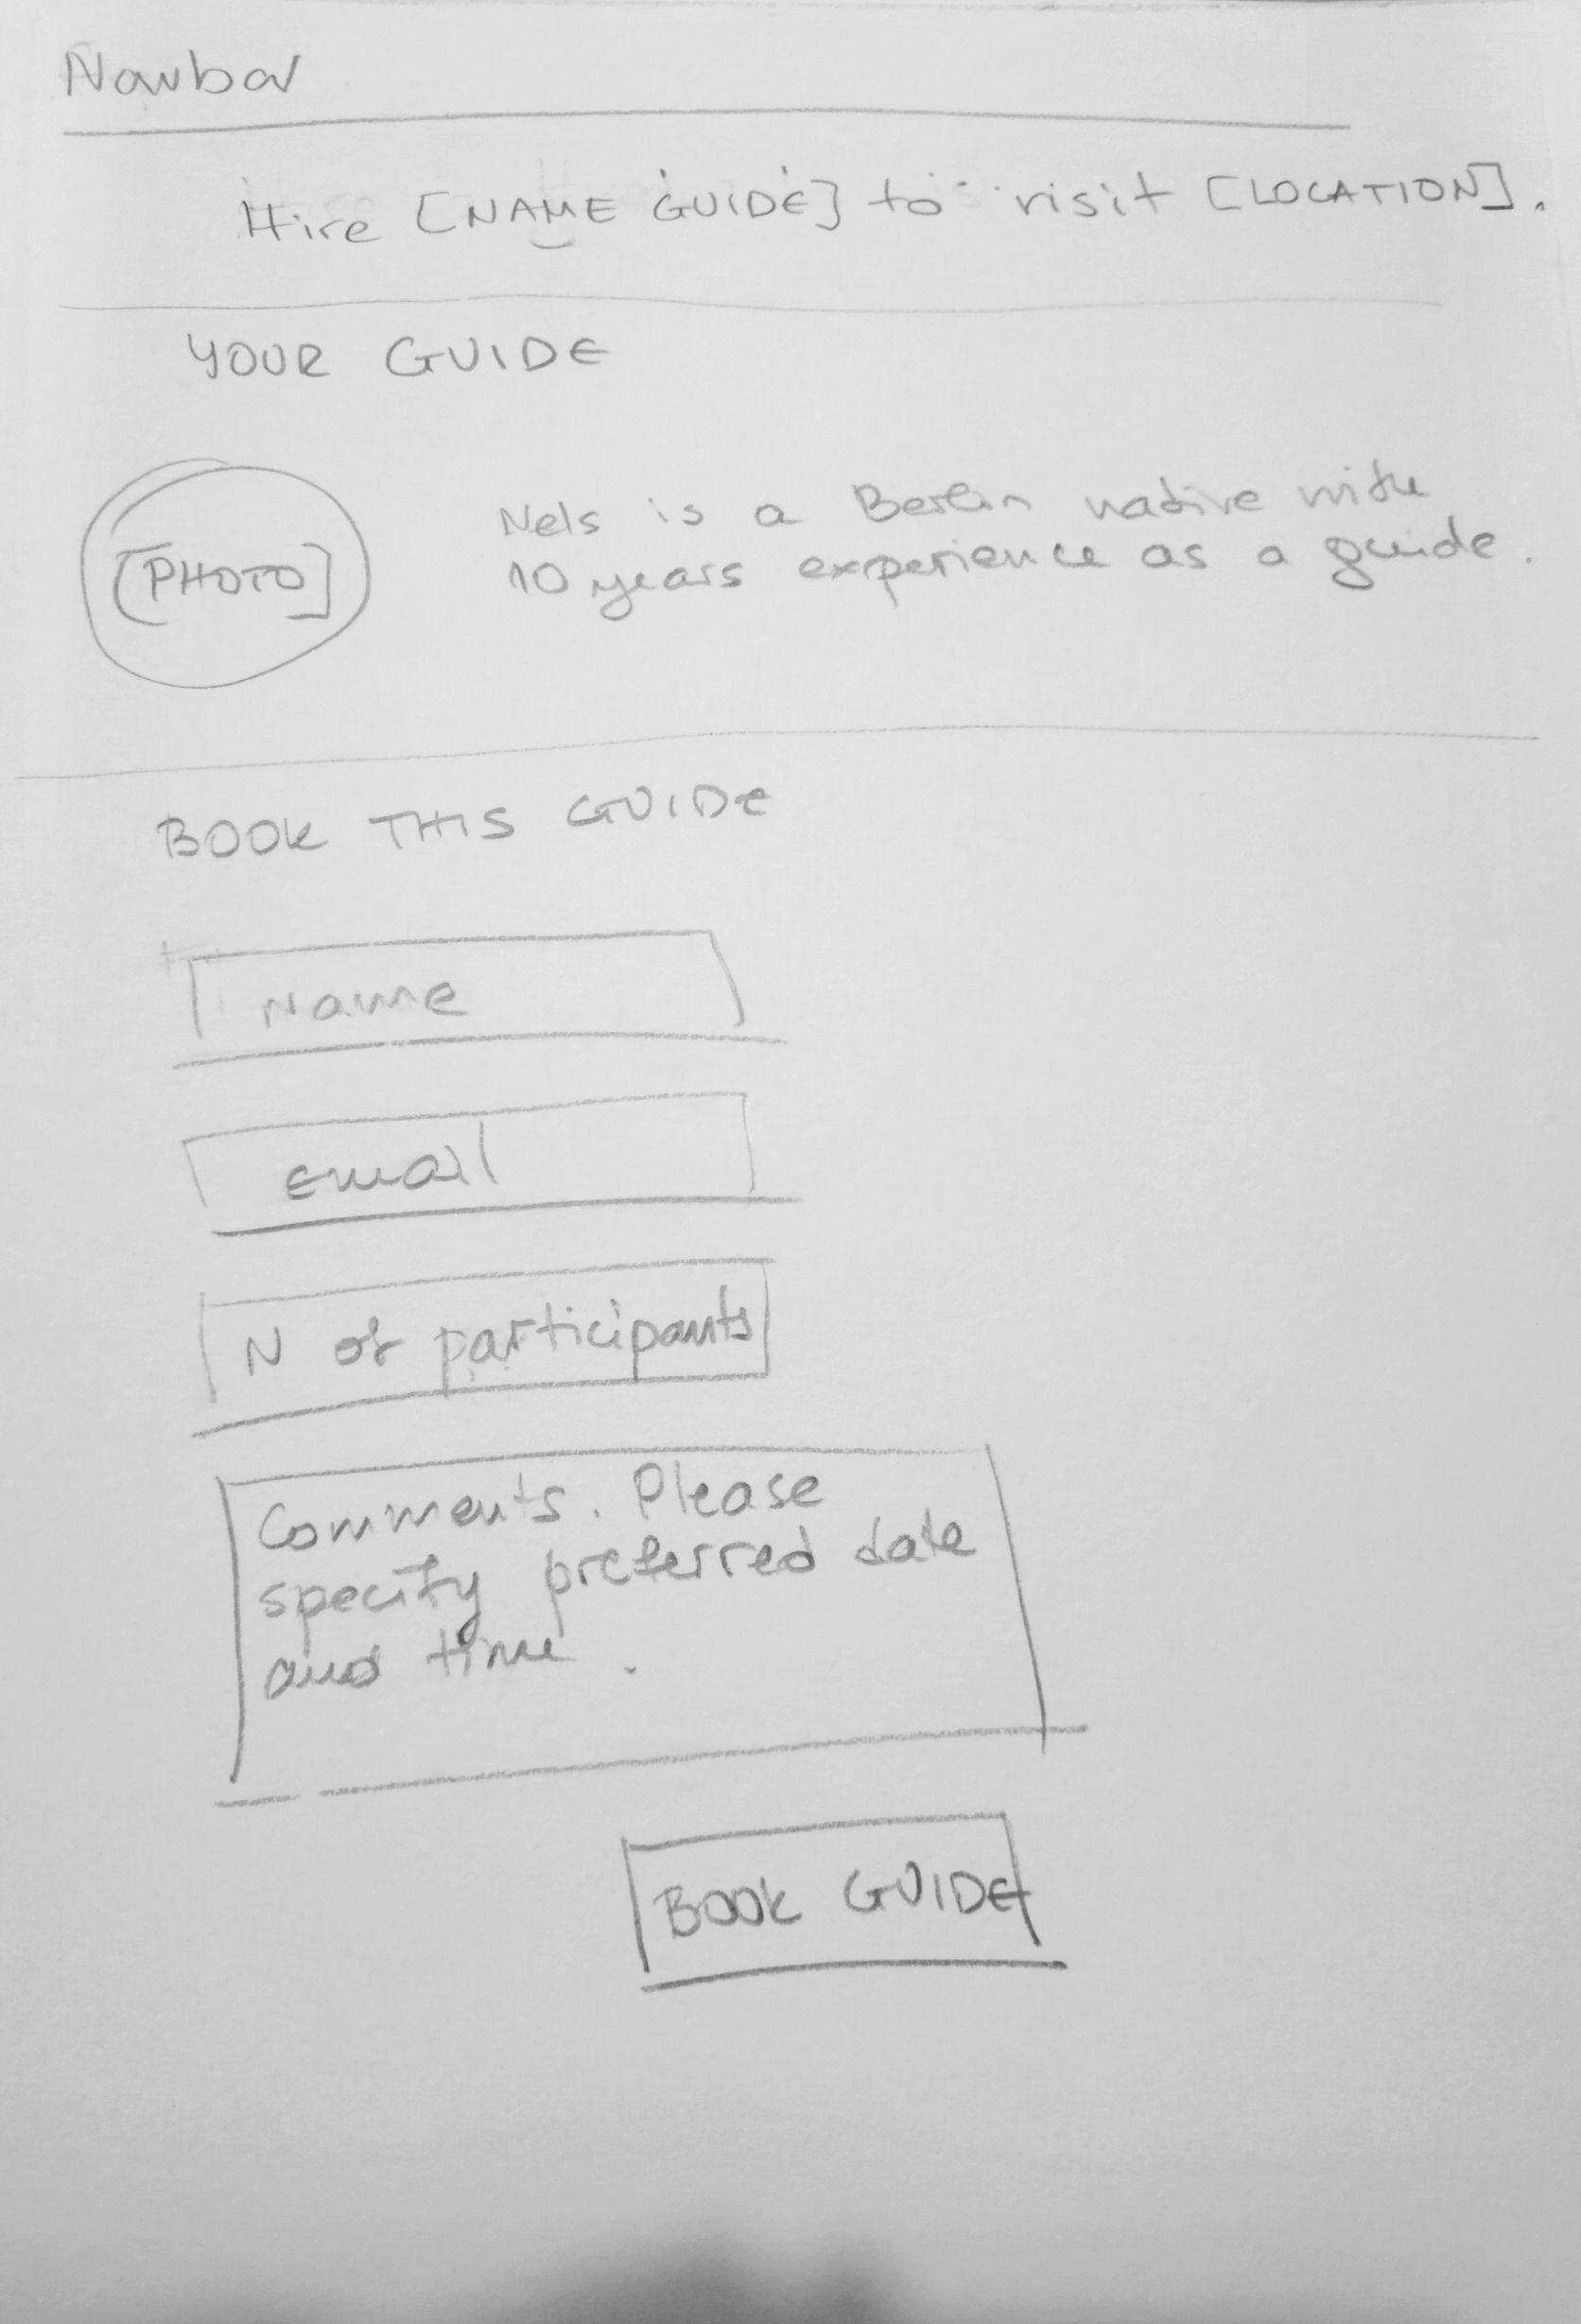 Navbar
Hire [NAME GUIDE] to visit [LOCATION].
YOUR GUIDE
[PHOTO]
Nels is a Berlin native with
10 years experience as a guide.
BOOK THIS GUIDE
Name
email
N of participants
Comments. Please
specify preferred date
and time.
BOOK GUIDE